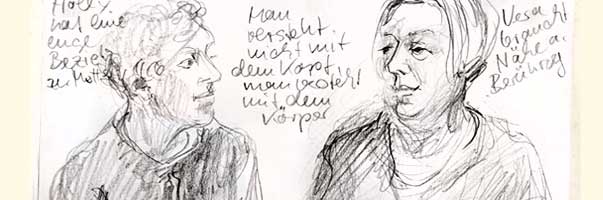 Holly
hat eine
enge
Bezieh
zu Mott
Man
versteht
nicht mit
dem Kopf,
man versteht
mit dem
Körper
Vesa
braucht
Nähe a.
Berührg